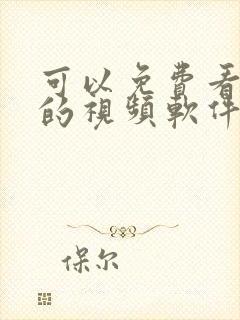 可以免費看
的視頻軟件
保尔